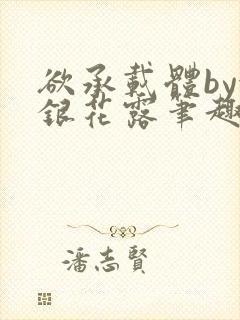 欲承載體by
銀花露筆趣
潘志賢